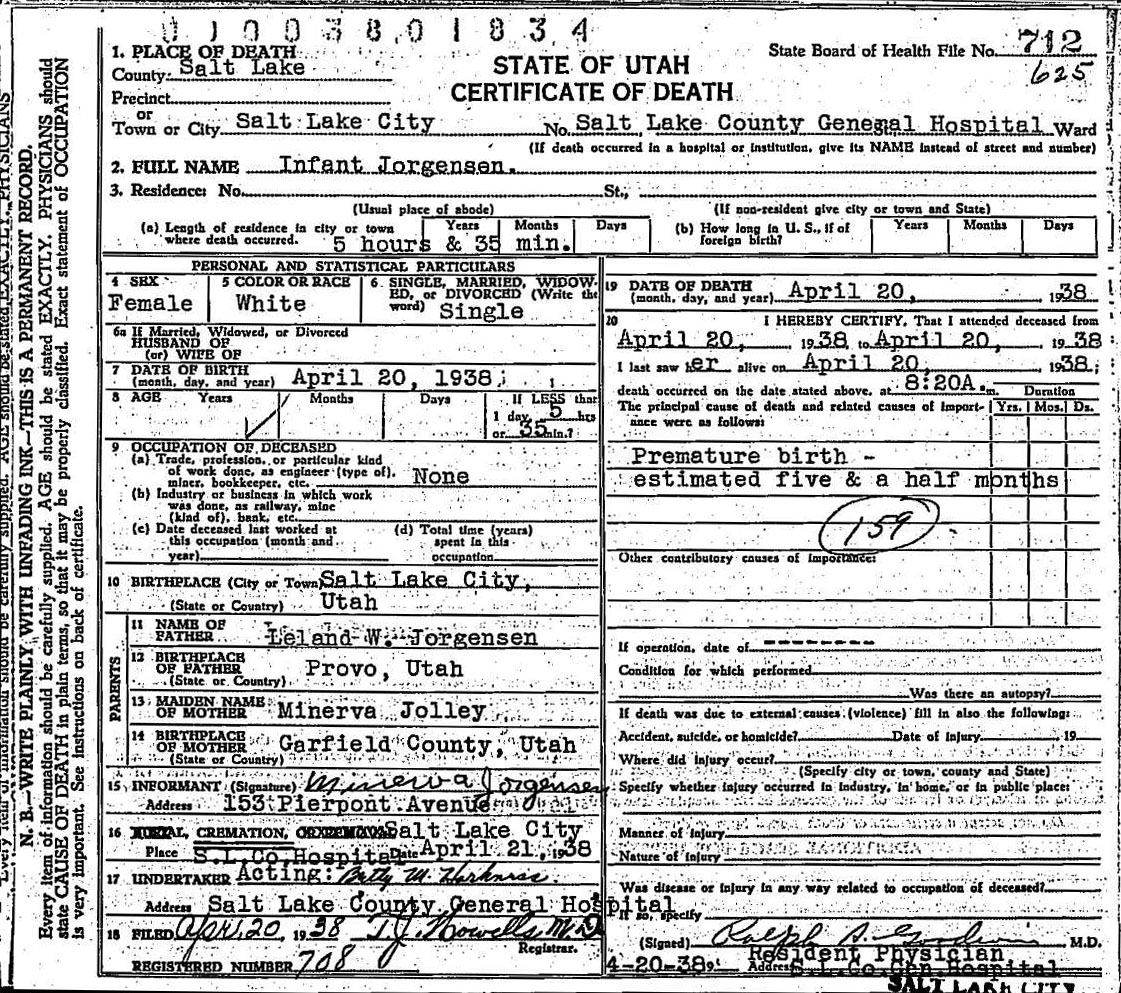 0 1 0 0 3 8 0 1 8 3 4
State Board of Health File No. 712
625
STATE OF UTAH
CERTIFICATE OF DEATH
1. PLACE OF DEATH
County: Salt Lake
Precinct
or
Town or City Salt Lake City No. Salt Lake County General Hospital Ward
(If death occurred in a hospital or institution, give its NAME instead of street and number)
2. FULL NAME Infant Jorgensen.
3. Residence: No. St.,
(Usual place of abode) (If non-resident give city or town and State)
(a) Length of residence in city or town where death occurred. Years Months Days
5 hours & 35 min.
(b) How long in U. S., if of foreign birth? Years Months Days
PERSONAL AND STATISTICAL PARTICULARS
4 SEX
Female
5 COLOR OR RACE
White
6 SINGLE, MARRIED, WIDOWED, or DIVORCED (Write the word) Single
6a If Married, Widowed, or Divorced
HUSBAND OF
(or) WIFE OF
7 DATE OF BIRTH
(month, day, and year) April 20, 1938
8 AGE Years Months Days If LESS than
1 day, 5 hrs
or 35 min.?
9 OCCUPATION OF DECEASED
(a) Trade, profession, or particular kind
of work done, as engineer (type of),
miner, bookkeeper, etc. None
(b) Industry or business in which work
was done, as railway, mine
(kind of), bank, etc.
(c) Date deceased last worked at
this occupation (month and
year)
(d) Total time (years)
spent in this
occupation
10 BIRTHPLACE (City or Town) Salt Lake City,
(State or Country) Utah
PARENTS
11 NAME OF
FATHER Leland W. Jorgensen
12 BIRTHPLACE
OF FATHER Provo, Utah
(State or Country)
13 MAIDEN NAME
OF MOTHER Minerva Jolley
14 BIRTHPLACE
OF MOTHER Garfield County, Utah
(State or Country)
15 INFORMANT (Signature) Minerva Jorgensen
Address 153 Pierpont Avenue
16 BURIAL, CREMATION, OR REMOVAL Salt Lake City
Place S.L.Co.Hospital Date April 21, 1938
17 UNDERTAKER Acting: Betty M. Harkness.
Address Salt Lake County General Hospital
18 FILED Apr. 20, 1938 T.J. Howells, M.D.
Registrar.
REGISTERED NUMBER 708
19 DATE OF DEATH
(month, day, and year) April 20, 1938
20 I HEREBY CERTIFY, That I attended deceased from
April 20, 1938 to April 20, 1938
I last saw her alive on April 20, 1938;
death occurred on the date stated above, at 8:20A. m. Duration
The principal cause of death and related causes of importance were as follows: Yrs. Mos. Ds.
Premature birth -
estimated five & a half months
159
Other contributory causes of importance:
If operation, date of --------
Condition for which performed
Was there an autopsy?
If death was due to external causes (violence) fill in also the following:
Accident, suicide, or homicide? Date of injury 19
Where did injury occur?
(Specify city or town, county and State)
Specify whether injury occurred in industry, in home, or in public place:
Manner of injury
Nature of injury
Was disease or injury in any way related to occupation of deceased?
If so, specify
(Signed) Ralph S. Goodwin M.D.
Resident Physician
4-20-38 Address S.L.Co.Gen.Hospital
SALT LAKE CITY
N. B.—WRITE PLAINLY WITH UNFADING INK—THIS IS A PERMANENT RECORD.
Every item of information should be carefully supplied. AGE should be stated EXACTLY. PHYSICIANS should
state CAUSE OF DEATH in plain terms, so that it may be properly classified. Exact statement of OCCUPATION
is very important. See instructions on back of certificate.